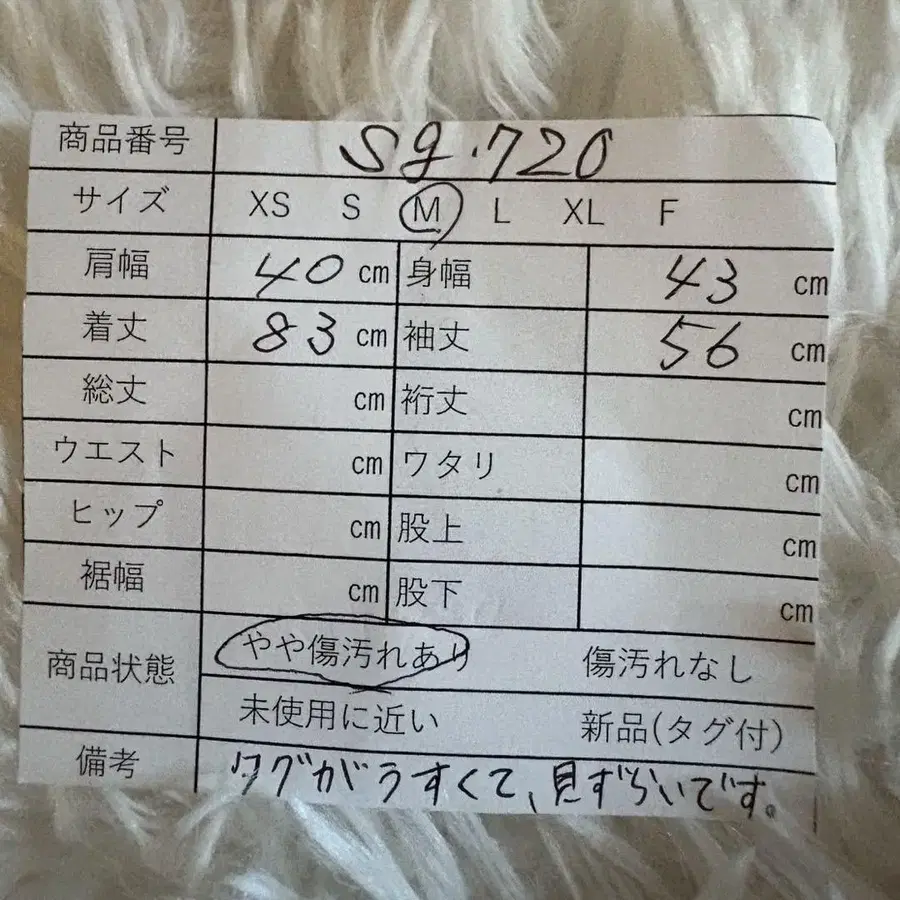 商品番号 sg.720
サイズ XS S M L XL F
肩幅 40 cm 身幅 43 cm
着丈 83 cm 袖丈 56 cm
総丈 cm 裄丈 cm
ウエスト cm ワタリ cm
ヒップ cm 股上 cm
裾幅 cm 股下 cm
商品状態 やや傷汚れあり 傷汚れなし
未使用に近い 新品(タグ付)
備考 タグがうすくて、見ずらいです。